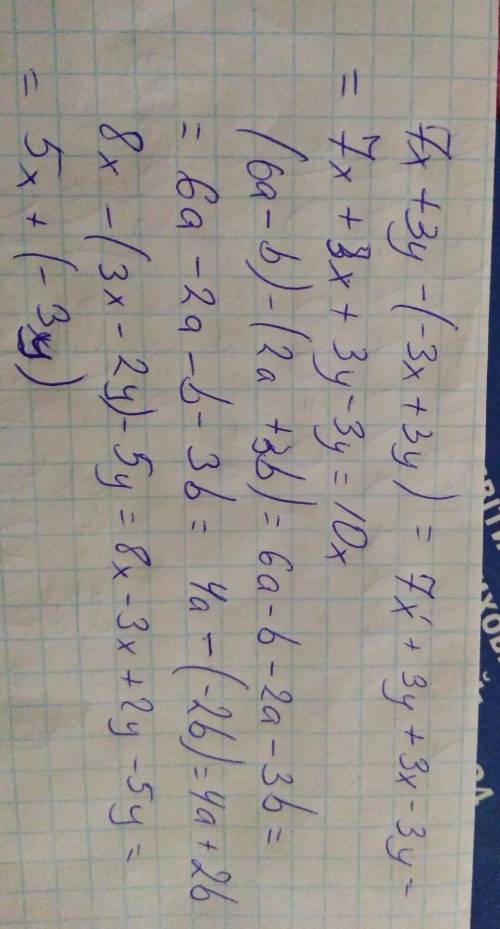 7x + 3y - (-3x + 3y) = 7x + 3y + 3x - 3y =
= 7x + 3x + 3y - 3y = 10x
(6a - b) - (2a + 3b) = 6a - b - 2a - 3b =
= 6a - 2a - b - 3b = 4a - (-2b) = 4a + 2b
8x - (3x - 2y) - 5y = 8x - 3x + 2y - 5y =
= 5x + (-3y)